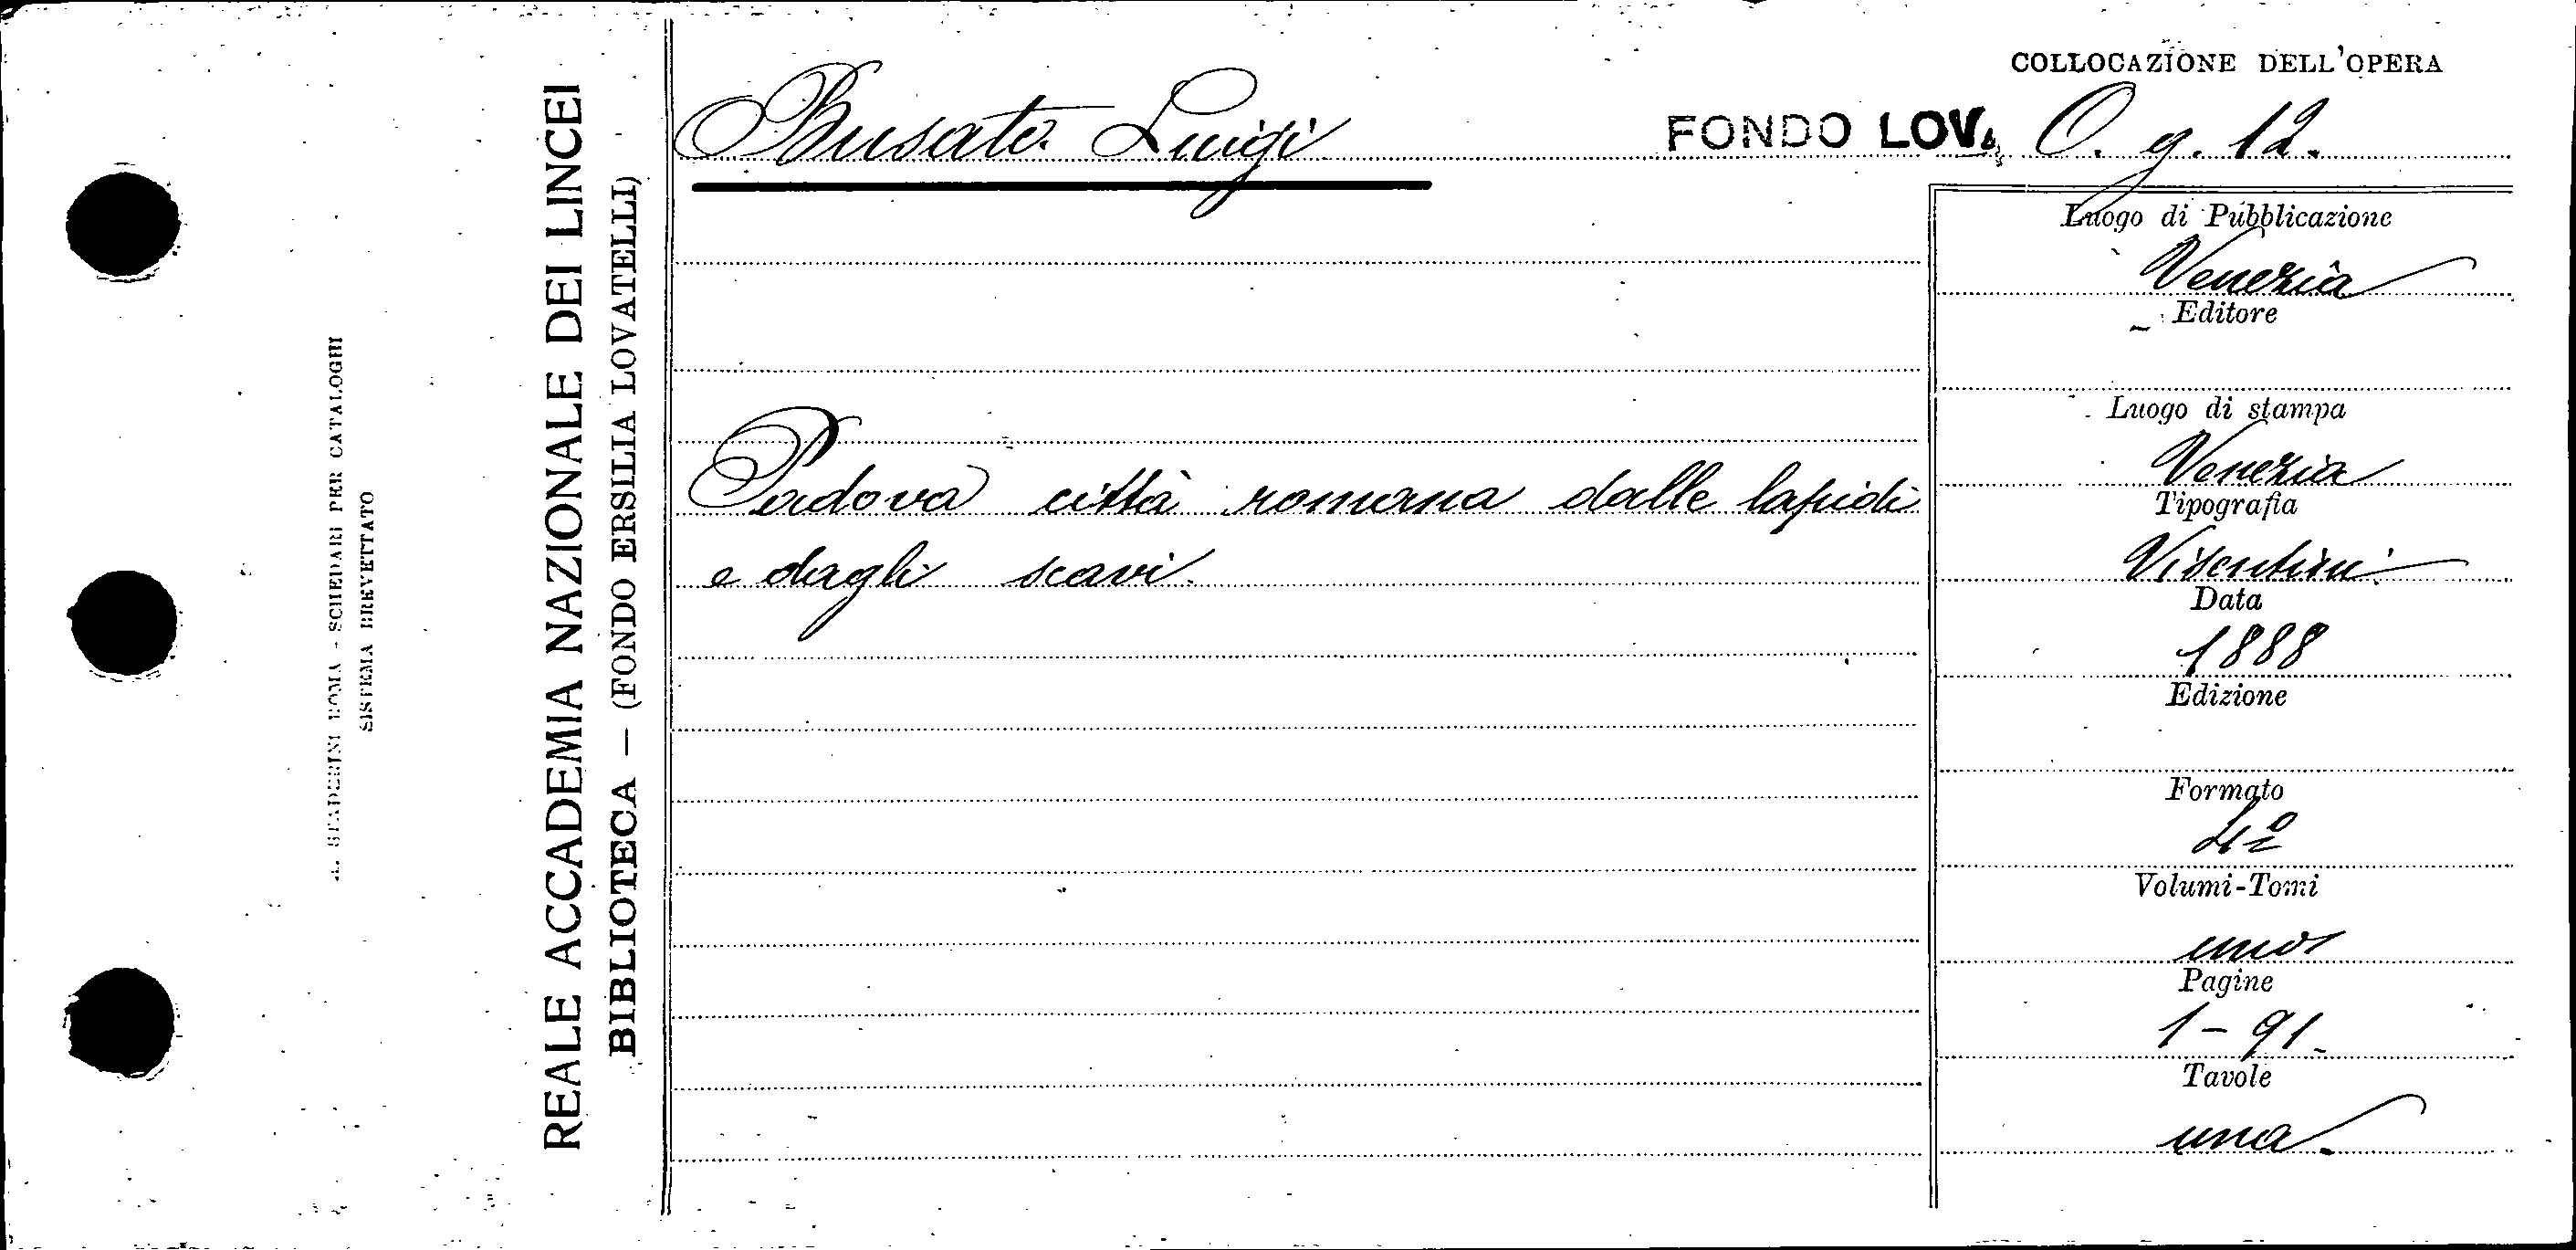 A. STADERINI ROMA - SCHEDARI PER CATALOGHI
SISTEMA BREVETTATO
REALE ACCADEMIA NAZIONALE DEI LINCEI
BIBLIOTECA — (FONDO ERSILIA LOVATELLI)
COLLOCAZIONE DELL'OPERA
Busato Luigi
FONDO LOV. O. g. 12.
Padova città romana dalle lapidi
e dagli scavi.
Luogo di Pubblicazione
Venezia
Editore
Luogo di stampa
Venezia
Tipografia
Visentini
Data
1888
Edizione
Formato
4º
Volumi-Tomi
uno
Pagine
1-91
Tavole
una.